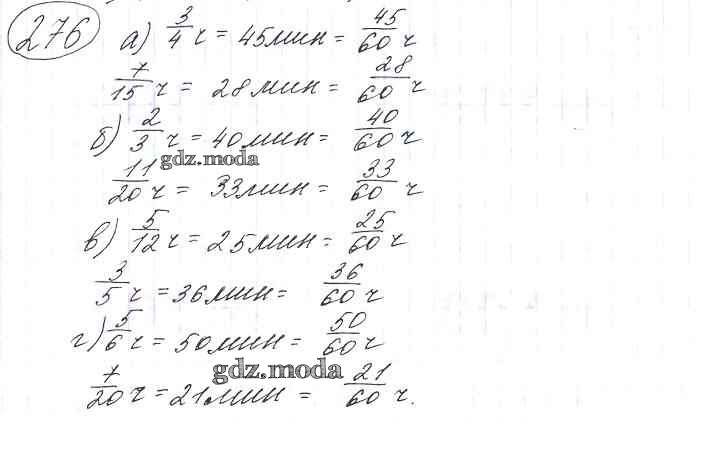 276 а) 3/4 ч = 45 мин = 45/60 ч
7/15 ч = 28 мин = 28/60 ч
б) 2/3 ч = 40 мин = 40/60 ч
gdz.moda
11/20 ч = 33 мин = 33/60 ч
в) 5/12 ч = 25 мин = 25/60 ч
3/5 ч = 36 мин = 36/60 ч
г) 5/6 ч = 50 мин = 50/60 ч
gdz.moda
7/20 ч = 21 мин = 21/60 ч.